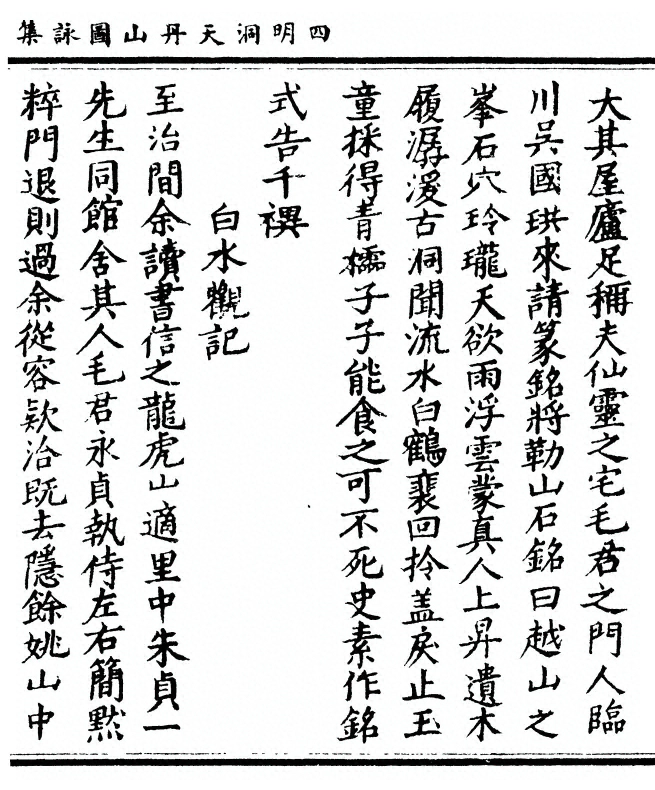 四明洞天丹山圖詠集
大其屋廬足稱夫仙靈之宅毛君之門人臨
川吳國珙來請篆銘將勒山石銘曰越山之
峯石穴玲瓏天欲雨浮雲蒙真人上昇遺木
履潺湲古洞聞流水白鶴裴回拎盖戾止玉
童採得青欞子子能食之可不死史素作銘
式告千禩
白水觀記
至治間余讀書信之龍虎山適里中朱貞一
先生同館舍其人毛君永貞執侍左右簡默
粹門退則過余從容欵洽既去隱餘姚山中